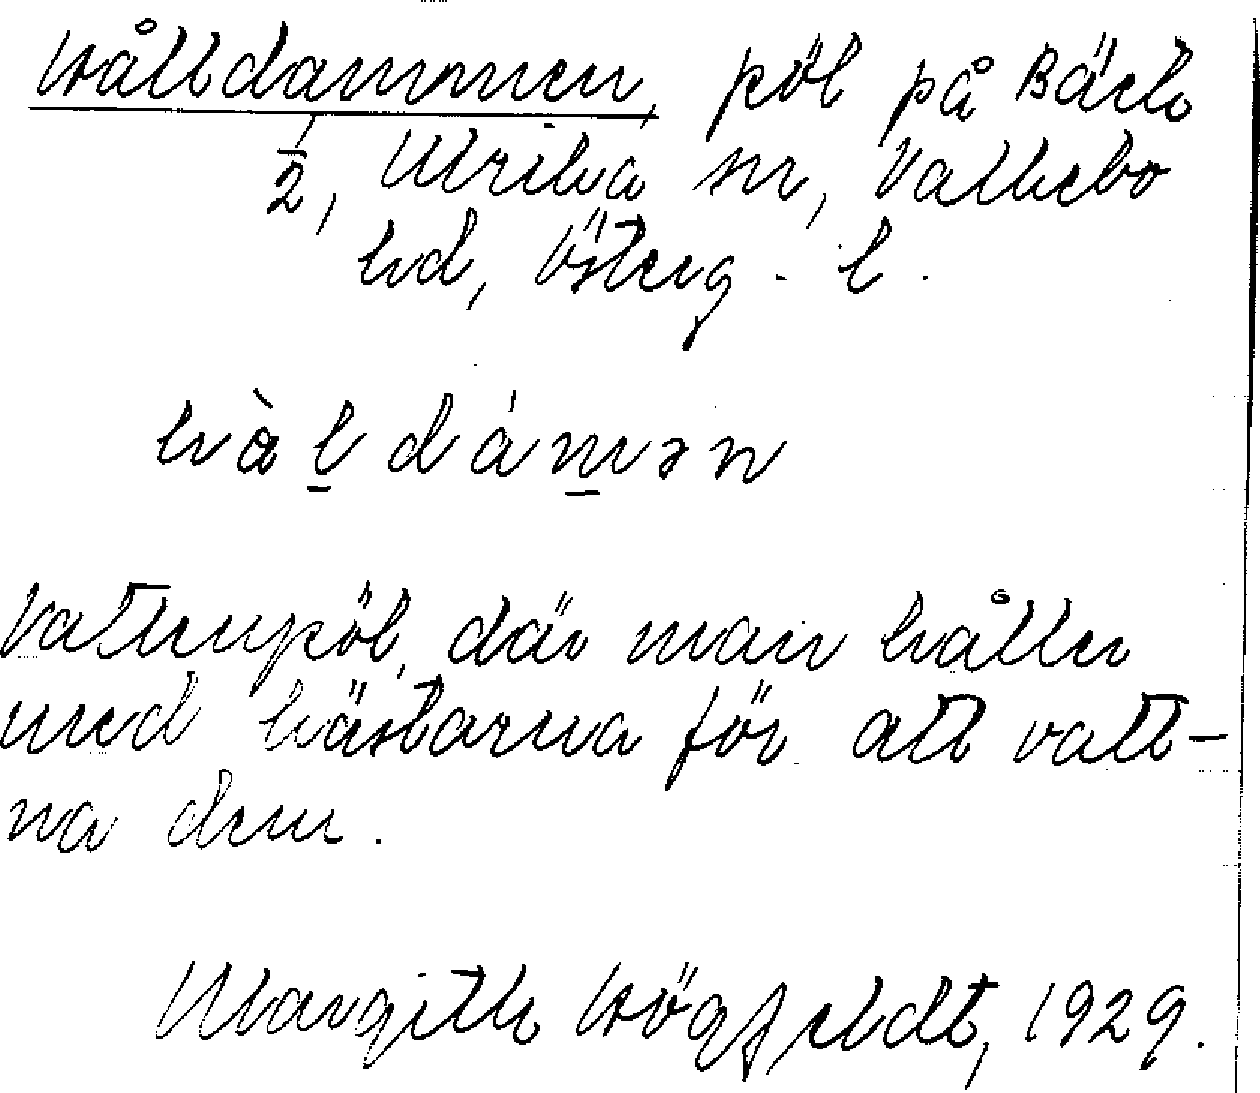 Hålldammen, pöl på Bäck
1/2, Ulrika sn, Valkebo
hd, Österg. l.
hàl̲dám̲ən
Vattenpöl, där man håller
med hästarna för att vatt-
na dem.
Margith Högfeldt, 1929.